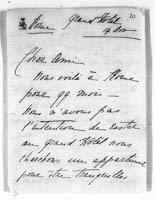 Rome Grand Hôtel
20
Cher Ami
Nous voilà à Rome
pour qq. mois —
Nous n'avons pas
l'intention de rester
au grand Hôtel nous
cherchons un appartement
pour être tranquilles